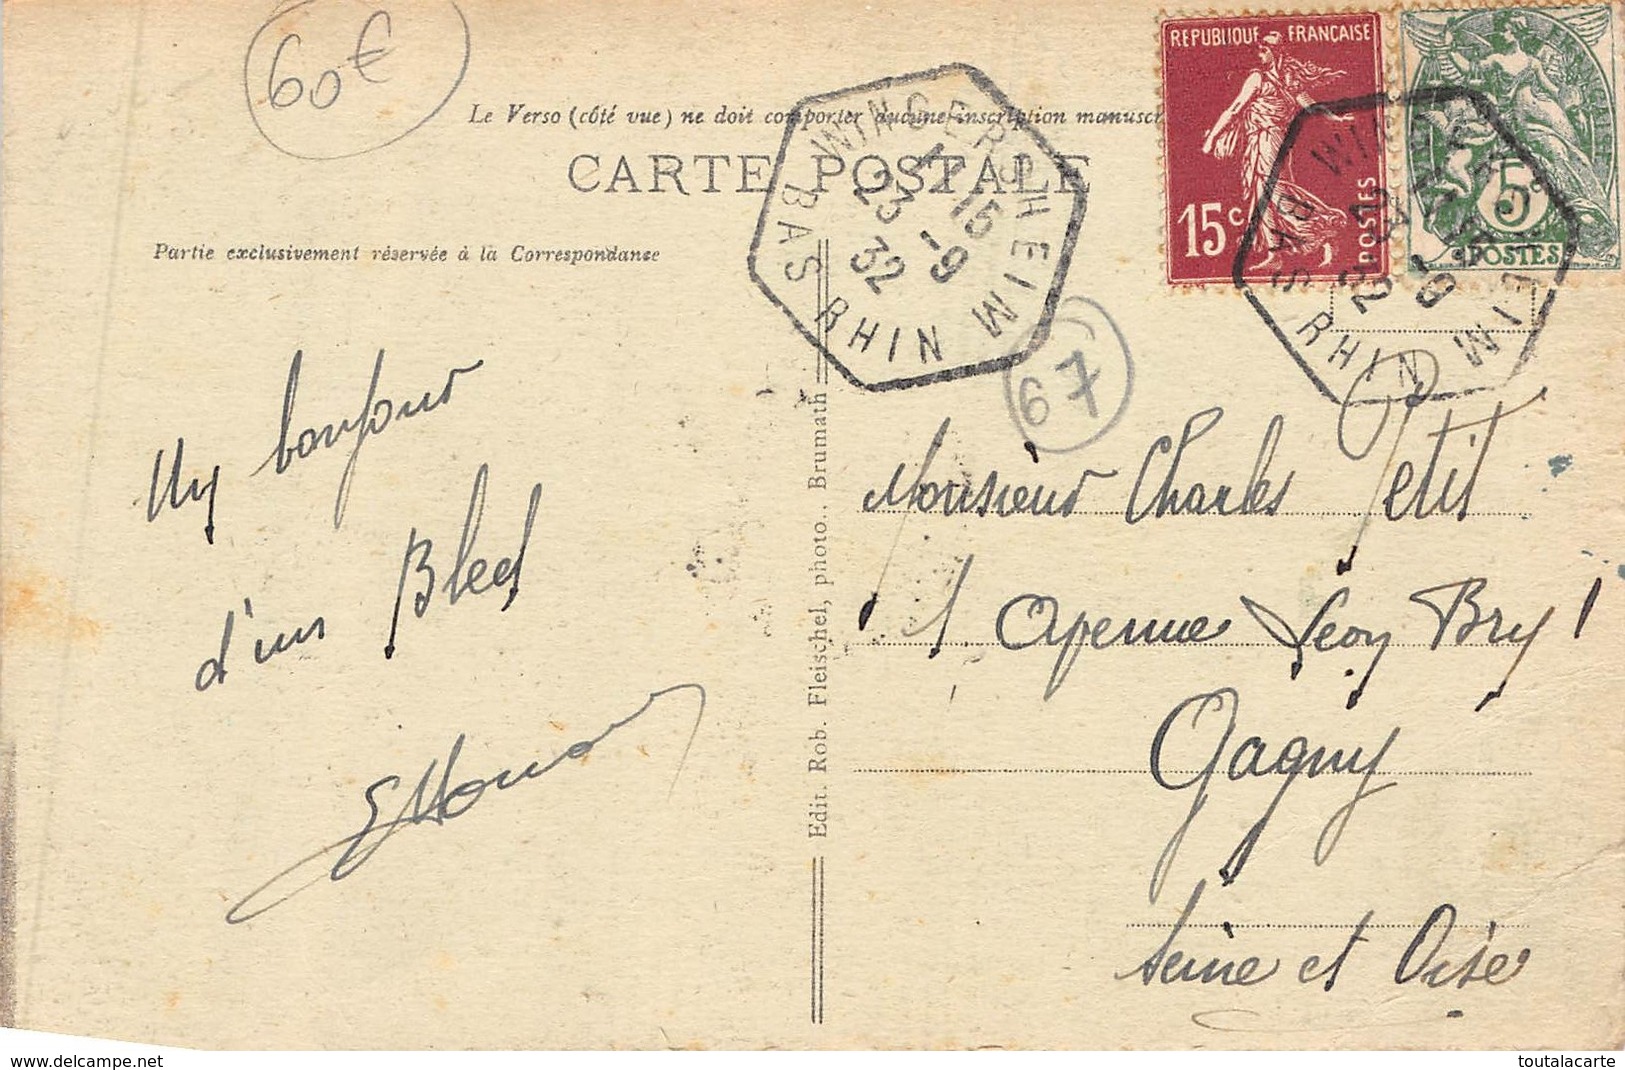 60€
Le Verso (côté vue) ne doit comporter aucune inscription manuscr
CARTE POSTALE
Partie exclusivement réservée à la Correspondance
REPUBLIQUE FRANÇAISE
15c
POSTES
5c
POSTES
WINGERSHEIM
17 15
23 -9
32
BAS RHIN
WINGERSHEIM
-9
32
BAS RHIN
67
Un bonjour
d'un Bled
Edit. Rob. Fleischel, photo., Brumath
Monsieur Charles Petit
1 Avenue Léon Bry 1
Gagny
Seine et Oise
www.delcampe.net
toutalacarte